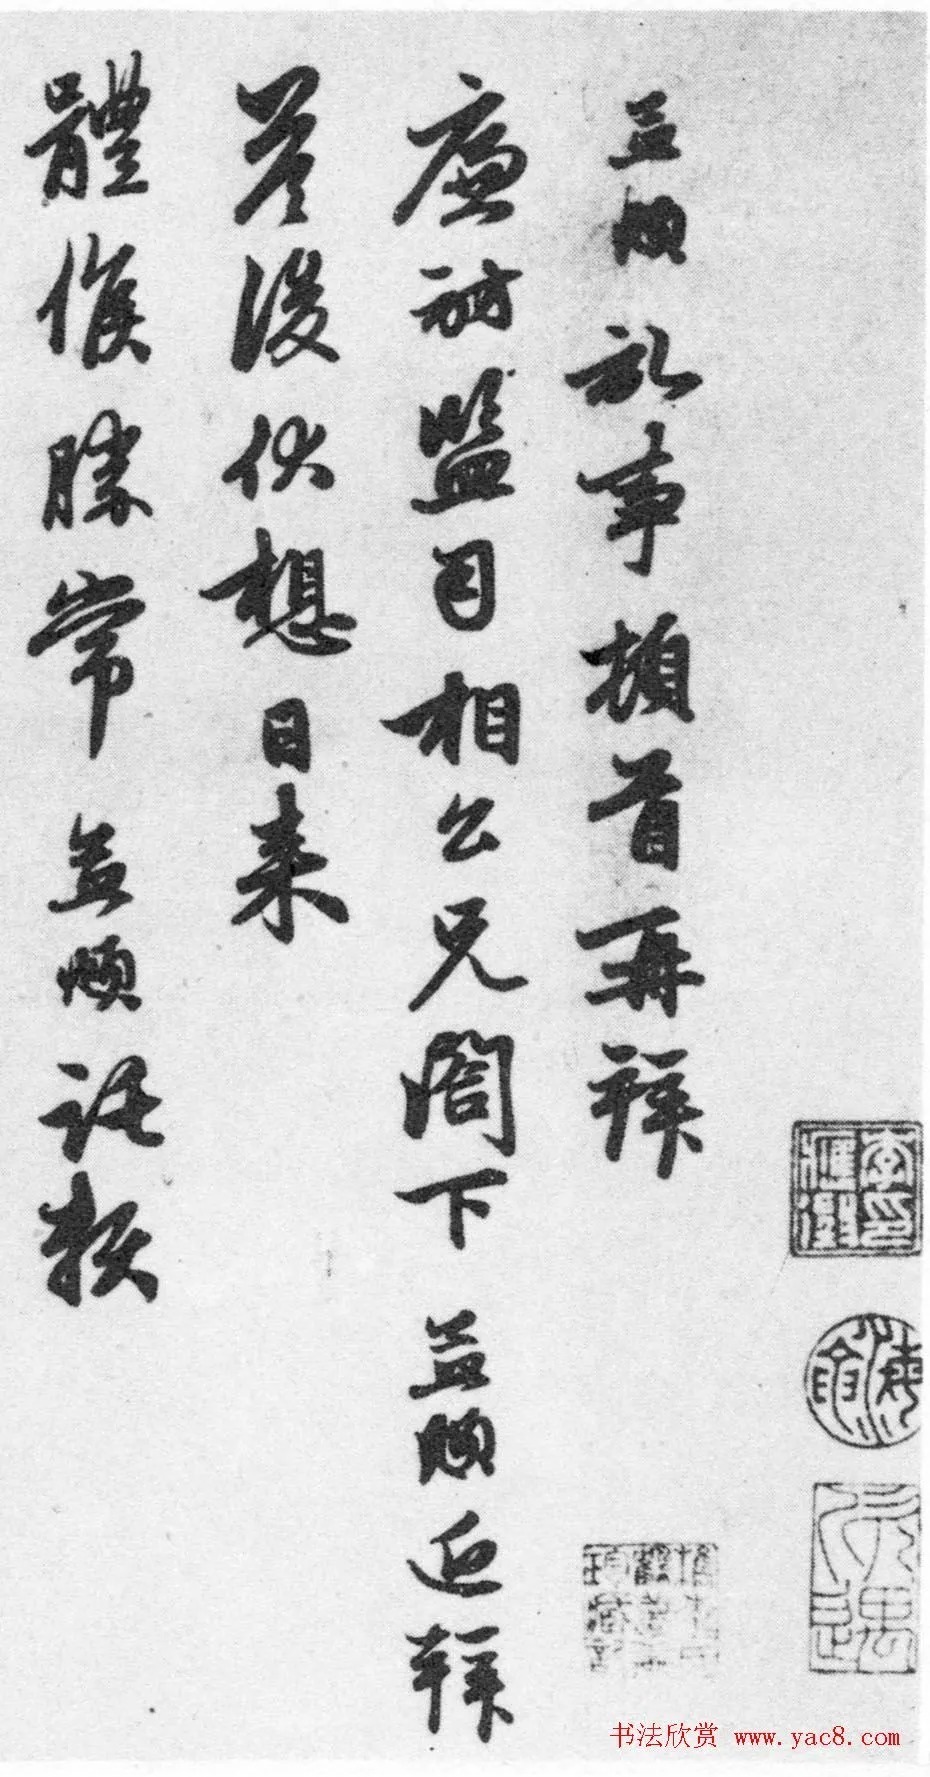 孟頫記事頓首再拜
廉訪監司相公兄閤下孟頫近拜
答後伏想日來
體候勝常孟頫託賴
书法欣赏 www.yac8.com